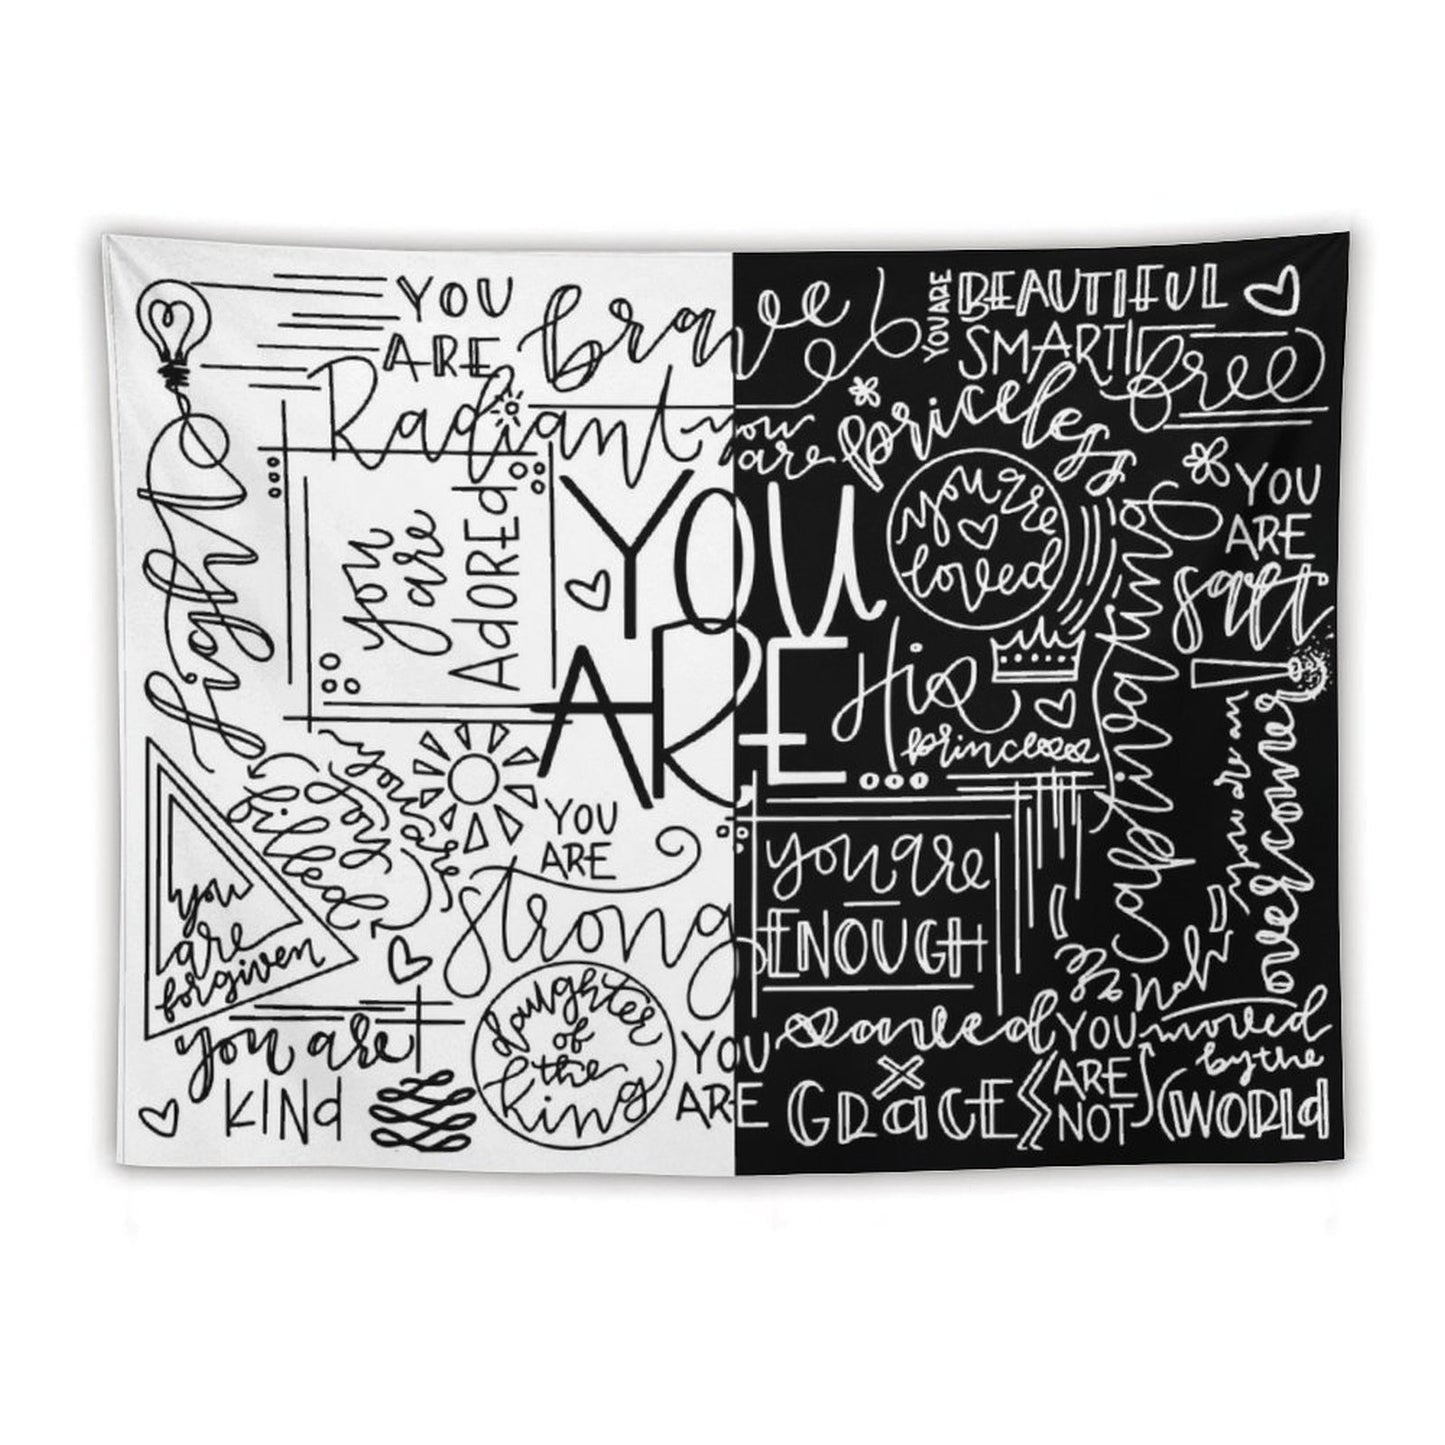 YOU
ARE
brave
YOU ARE
BEAUTIFUL
SMART
free
Radiant
you
are
priceless
light
you
are
ADOREd
YOU
ARE...
you are
loved
His
princess
captivating
YOU
ARE
salt
you are an
overcomer
joy
filled
you are
YOU
ARE
strong
you are
ENOUGH
you
are
forgiven
you are
KINd
daughter
of
the
king
YOU
ARE
saved
X
GRaCE
YOU
ARE
NOT
not
moved
by the
WORLd